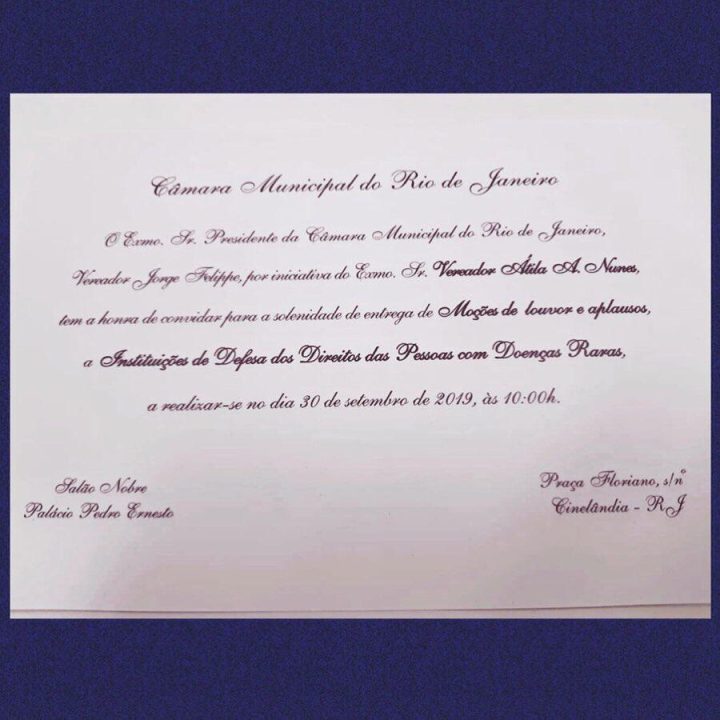 Câmara Municipal do Rio de Janeiro
O Exmo. Sr. Presidente da Câmara Municipal do Rio de Janeiro,
Vereador Jorge Felippe, por iniciativa do Exmo. Sr. Vereador Átila A. Nunes,
tem a honra de convidar para a solenidade de entrega de Moções de louvor e aplausos,
a Instituições de Defesa dos Direitos das Pessoas com Doenças Raras,
a realizar-se no dia 30 de setembro de 2019, às 10:00h.
Salão Nobre
Palácio Pedro Ernesto
Praça Floriano, s/nº
Cinelândia - RJ